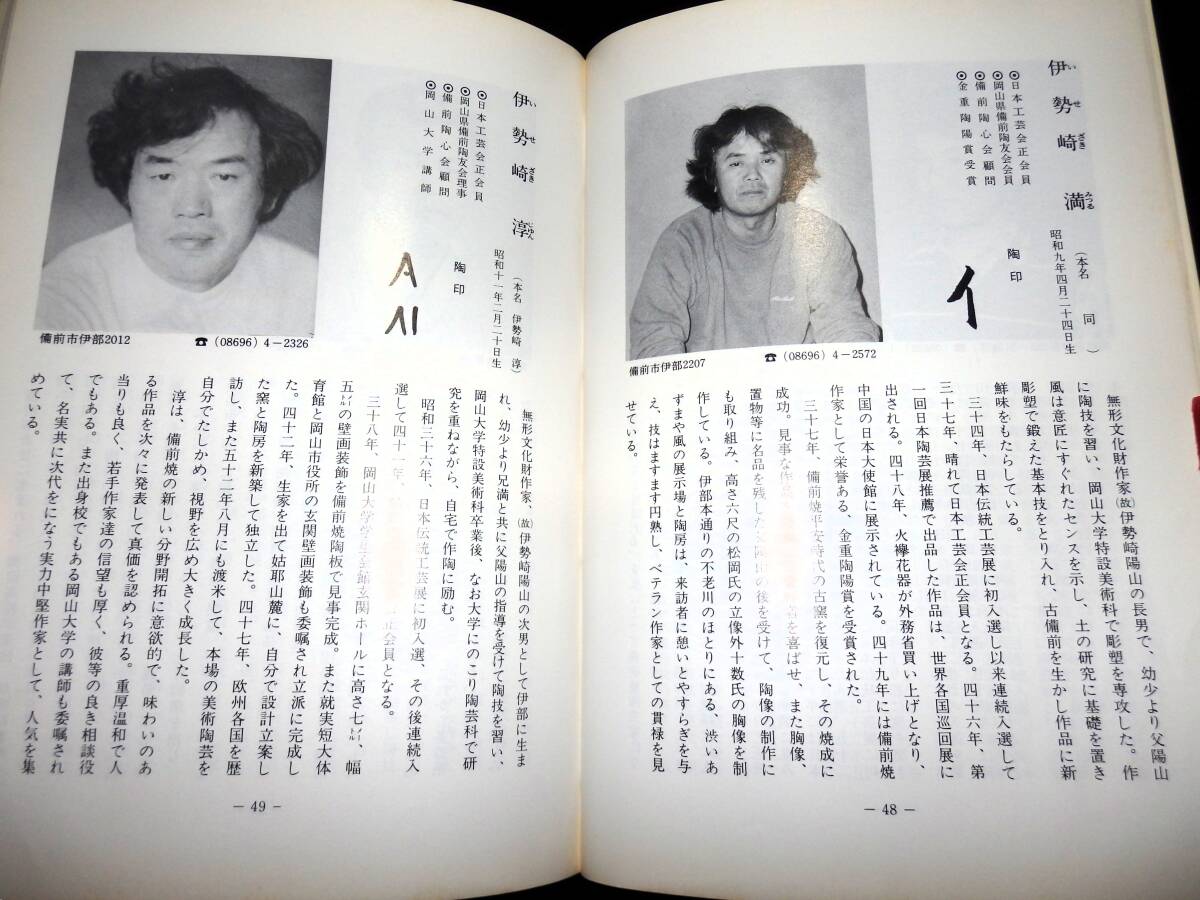 伊勢崎 満
いせざきみつる
(本名 同)
昭和九年四月二十四日生
◉日本工芸会正会員
◉岡山県備前陶友会会員
◉備前陶心会顧問
◉金重陶陽賞受賞
陶印
イ
備前市伊部2207
☎(08696)4-2572
無形文化財作家、㈹伊勢崎陽山の長男で、幼少より父陽山
に陶技を習い、岡山大学特設美術科で彫塑を専攻した。作
風は意匠にすぐれたセンスを示し、土の研究に基礎を置き
彫塑で鍛えた基本技をとり入れ、古備前を生かし作品に新
鮮味をもたらしている。
三十四年、日本伝統工芸展に初入選し以来連続入選して
三十七年、晴れて日本工芸会正会員となる。四十六年、第
一回日本陶芸展推薦で出品した作品は、世界各国巡回展に
出される。四十八年、火襷花器が外務省買い上げとなり、
中国の日本大使館に展示されている。四十九年には備前焼
作家として栄誉ある、金重陶陽賞を受賞された。
三十七年、備前焼平安時代の古窯を復元し、その焼成に
成功。見事な作
を喜ばせ、また胸像、
置物等に名品を残した
の後を受けて、陶像の制作に
も取り組み、高さ六尺の松岡氏の立像外十数氏の胸像を制
作している。伊部本通りの不老川のほとりにある、渋いあ
ずまや風の展示場と陶房は、来訪者に憩いとやすらぎを与
え、技はますます円熟し、ベテラン作家としての貫禄を見
せている。
— 48 —
伊勢崎 淳
いせざきじゆん
(本名 伊勢崎 淳)
昭和十一年二月二十日生
◉日本工芸会正会員
◉岡山県備前陶友会理事
◉備前陶心会顧問
◉岡山大学講師
陶印
備前市伊部2012
☎(08696)4-2326
無形文化財作家、(故)伊勢崎陽山の次男として伊部に生ま
れ、幼少より兄満と共に父陽山の指導を受けて陶技を習い、
岡山大学特設美術科卒業後、なお大学にのこり陶芸科で研
究を重ねながら、自宅で作陶に励む。
昭和三十六年、日本伝統工芸展に初入選、その後連続入
選して四十一年、
正会員となる。
三十八年、岡山大学学生会館玄関ホールに高さ七㍍、幅
五㍍の壁画装飾を備前焼陶板で見事完成。また就実短大体
育館と岡山市役所の玄関壁画装飾も委嘱され立派に完成し
た。四十二年、生家を出て姑耶山麓に、自分で設計立案し
た窯と陶房を新築して独立した。四十七年、欧州各国を歴
訪し、また五十二年八月にも渡米して、本場の美術陶芸を
自分でたしかめ、視野を広め大きく成長した。
淳は、備前焼の新しい分野開拓に意欲的で、味わいのあ
る作品を次々に発表して真価を認められる。重厚温和で人
当りも良く、若手作家達の信望も厚く、彼等の良き相談役
でもある。また出身校でもある岡山大学の講師も委嘱され
て、名実共に次代をになう実力中堅作家として、人気を集
めている。
— 49 —